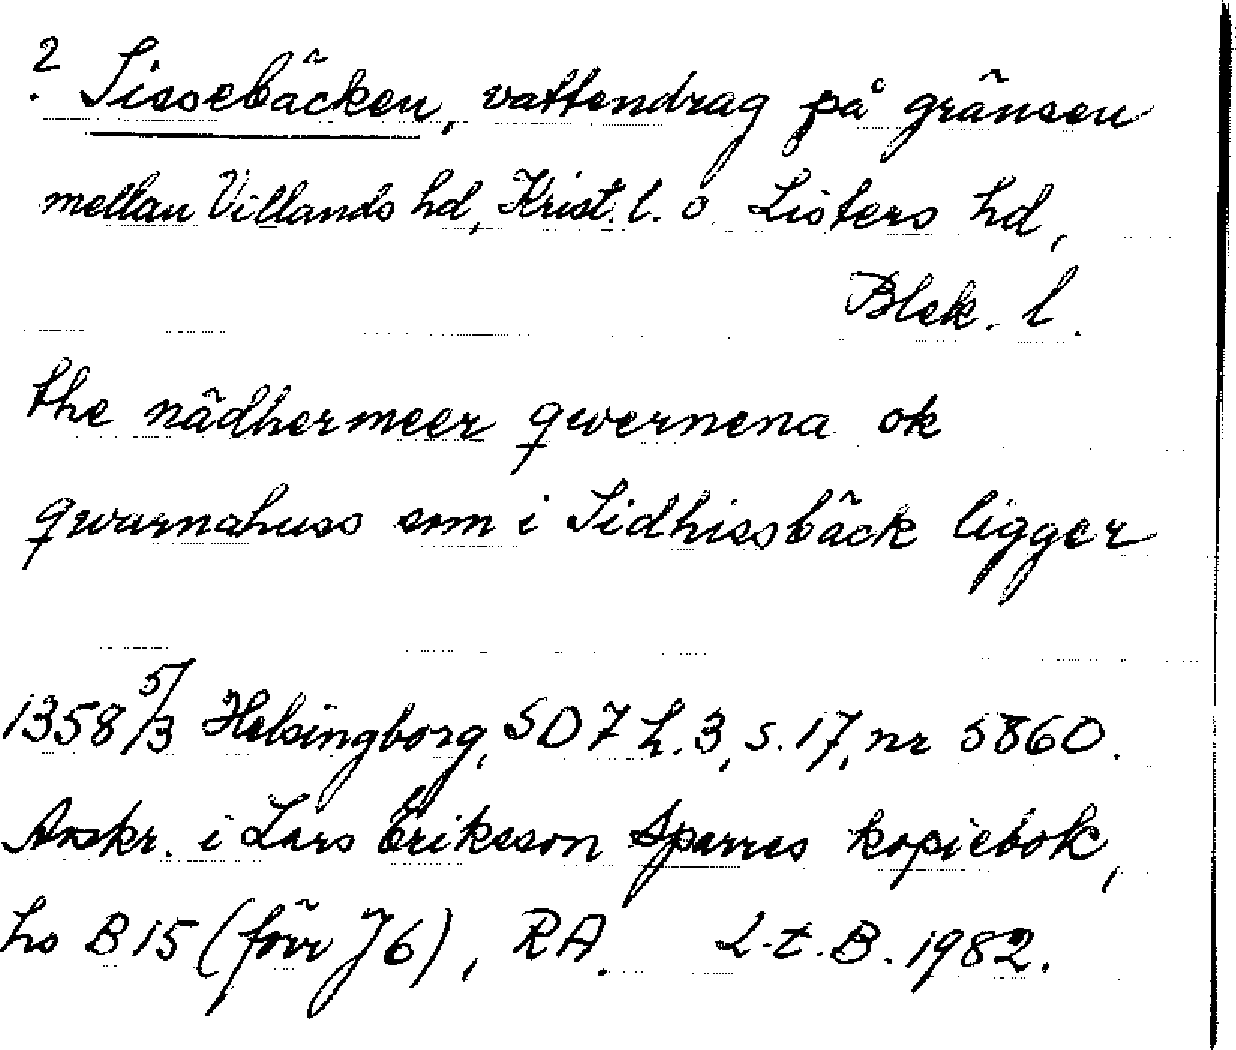 ? Sissebäcken, vattendrag på gränsen
mellan Villands hd, Krist. l. o Listers hd,
Blek. l.
the nädhermeer qwernena ok
qwarnahuss som i Sidhissbäck ligger
1358 5/3 Helsingborg, SD 7 h. 3, s. 17, nr 5860.
Avskr. i Lars Eriksson Sparres kopiebok,
hs B 15 (förr J 6), RA. L-t. B. 1982.